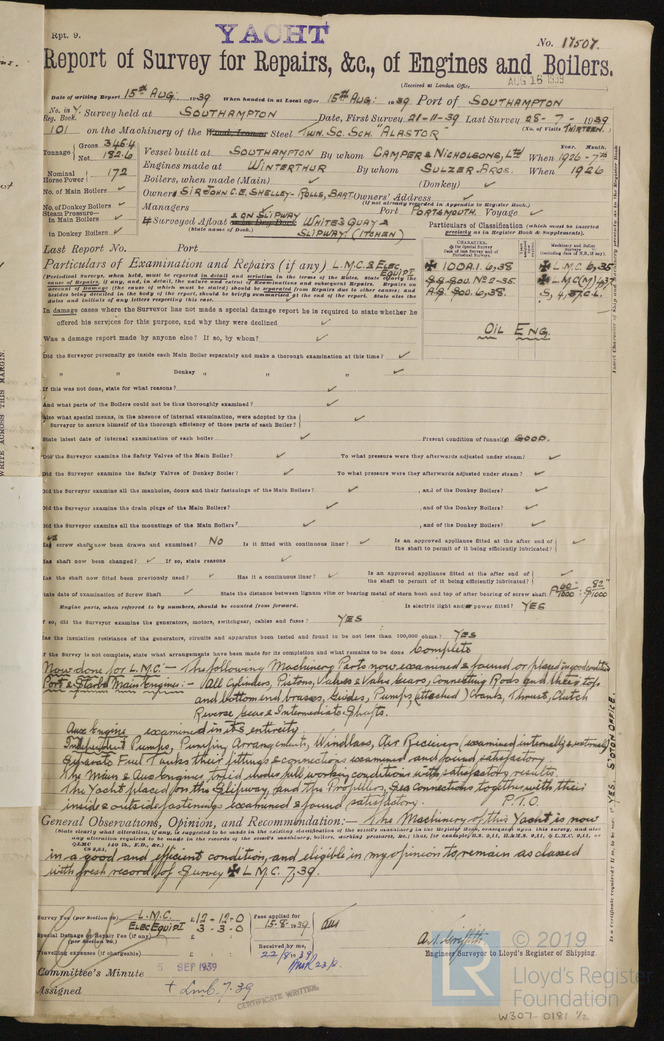 YACHT
Rpt. 9.
No. 17507.
Report of Survey for Repairs, &c., of Engines and Boilers.
(Received at London Office AUG 16 1939
Date of writing Report 15th AUG: 1939 When handed in at Local Office 15th AUG: 1939 Port of SOUTHAMPTON
No. in Y. Reg. Book. Survey held at SOUTHAMPTON Date, First Survey 21-11-39 Last Survey 28-7-1939
(No. of Visits THIRTEEN.)
101 on the Machinery of the Wood, Iron or Steel TWN. SC. SCH. "ALASTOR"
Tonnage Gross 346.4 Net 182.6 Vessel built at SOUTHAMPTON By whom CAMPER & NICHOLSONS, LTD When 1926 - 7th
Year. Month.
Nominal Horse Power 172 Engines made at WINTERTHUR By whom SULZER BROS. When 1926
No. of Main Boilers Boilers, when made (Main) (Donkey)
No. of Donkey Boilers Owners SIR JOHN C.E. SHELLEY-ROLLS, BART Owners' Address
(If not already recorded in Appendix to Register Book.)
Steam Pressure— in Main Boilers Managers Port PORTSMOUTH Voyage
in Donkey Boilers If Surveyed Afloat & ON SLIPWAY WHITE'S QUAY & SLIPWAY (ITCHEN)
(State name of Dock.)
Particulars of Classification (which must be inserted precisely as in Register Book & Supplements).
Last Report No. Port
Particulars of Examination and Repairs (if any) L.M.C. & ELEC EQUIPT
✠ 100A1. 6,38 ✠ L.M.C. 6,35
S.S. SOU. No 2-35. ✠ L.M.C(M) 4,37
A.S. SOU. 6,38.
OIL ENG.
In damage cases where the Surveyor has not made a special damage report he is required to state whether he
offered his services for this purpose, and why they were declined
Was a damage report made by anyone else? If so, by whom?
Did the Surveyor personally go inside each Main Boiler separately and make a thorough examination at this time?
" " Donkey " " "
If this was not done, state for what reasons?
And what parts of the Boilers could not be thus thoroughly examined?
Also what special means, in the absence of internal examination, were adopted by the
Surveyor to assure himself of the thorough efficiency of those parts of each Boiler?
State latest date of internal examination of each boiler Present condition of funnel(s) GOOD.
Did the Surveyor examine the Safety Valves of the Main Boiler? To what pressure were they afterwards adjusted under steam?
Did the Surveyor examine the Safety Valves of Donkey Boiler? To what pressure were they afterwards adjusted under steam?
Did the Surveyor examine all the manholes, doors and their fastenings of the Main Boilers? , and of the Donkey Boilers?
Did the Surveyor examine the drain plugs of the Main Boilers? , and of the Donkey Boilers?
Did the Surveyor examine all the mountings of the Main Boilers? , and of the Donkey Boilers?
Has screw shaft now been drawn and examined? No Is it fitted with continuous liner? Is an approved appliance fitted at the after end of
the shaft to permit of it being efficiently lubricated?
Has shaft now been changed? If so, state reasons
Has the shaft now fitted been previously used? Has it a continuous liner? Is an approved appliance fitted at the after end of
the shaft to permit of it being efficiently lubricated?
State date of examination of Screw Shaft State the distance between lignum vitæ or bearing metal of stern bush and top of after bearing of screw shaft P 60/1000 : S 82/1000
Engine parts, when referred to by numbers, should be counted from forward. Is electric light and/or power fitted? YES
If so, did the Surveyor examine the generators, motors, switchgear, cables and fuses? YES
Has the insulation resistance of the generators, circuits and apparatus been tested and found to be not less than 100,000 ohms? YES
If the Survey is not complete, state what arrangements have been made for its completion and what remains to be done Complete
Now done for L.M.C. — The following Machinery Parts now examined & found or placed in good condition
Port & Starbd Main Engines: - All Cylinders, Pistons, Valves & Valve Gears, Connecting Rods and their tops
and bottom end brasses, Guides, Pumps (attached) Cranks, Thrust, Clutch
Reverse gear & Intermediate Shafts.
Aux Engine examined in its entirety
Independent Pumps, Pumping Arrangements, Windlass, Air Receivers (examined internally & externally)
Separate Fuel Tanks their fittings & connections examined and found satisfactory
The Main & Aux Engines, tried under full working conditions with satisfactory results.
The Yacht placed on the Slipway, and the Propellers, Sea connections together with their
inside & outside fastenings examined & found satisfactory. P.T.O.
General Observations, Opinion, and Recommendation:— The Machinery of this Yacht is now
in a good and efficient condition, and eligible in my opinion to remain as classed
with fresh record of Survey ✠ L.M.C. 7,39.
Survey Fee (per Section 29) L.M.C. £12-12-0 Fees applied for 15.8.1939
ELEC EQUIPT 3-3-0
Special Damage or Repair Fee (if any) (per Section 29.)
Received by me, 22/8/1939
Travelling expenses (if chargeable)
Engineer Surveyor to Lloyd's Register of Shipping.
Committee's Minute 5 SEP 1939
Assigned + LMC. 7.39
CERTIFICATE WRITTEN
© 2019
LR
Lloyd's Register
Foundation
W307-0181 1/2
WRITE ACROSS THIS MARGIN.
YES. S'OTON OFFICE.